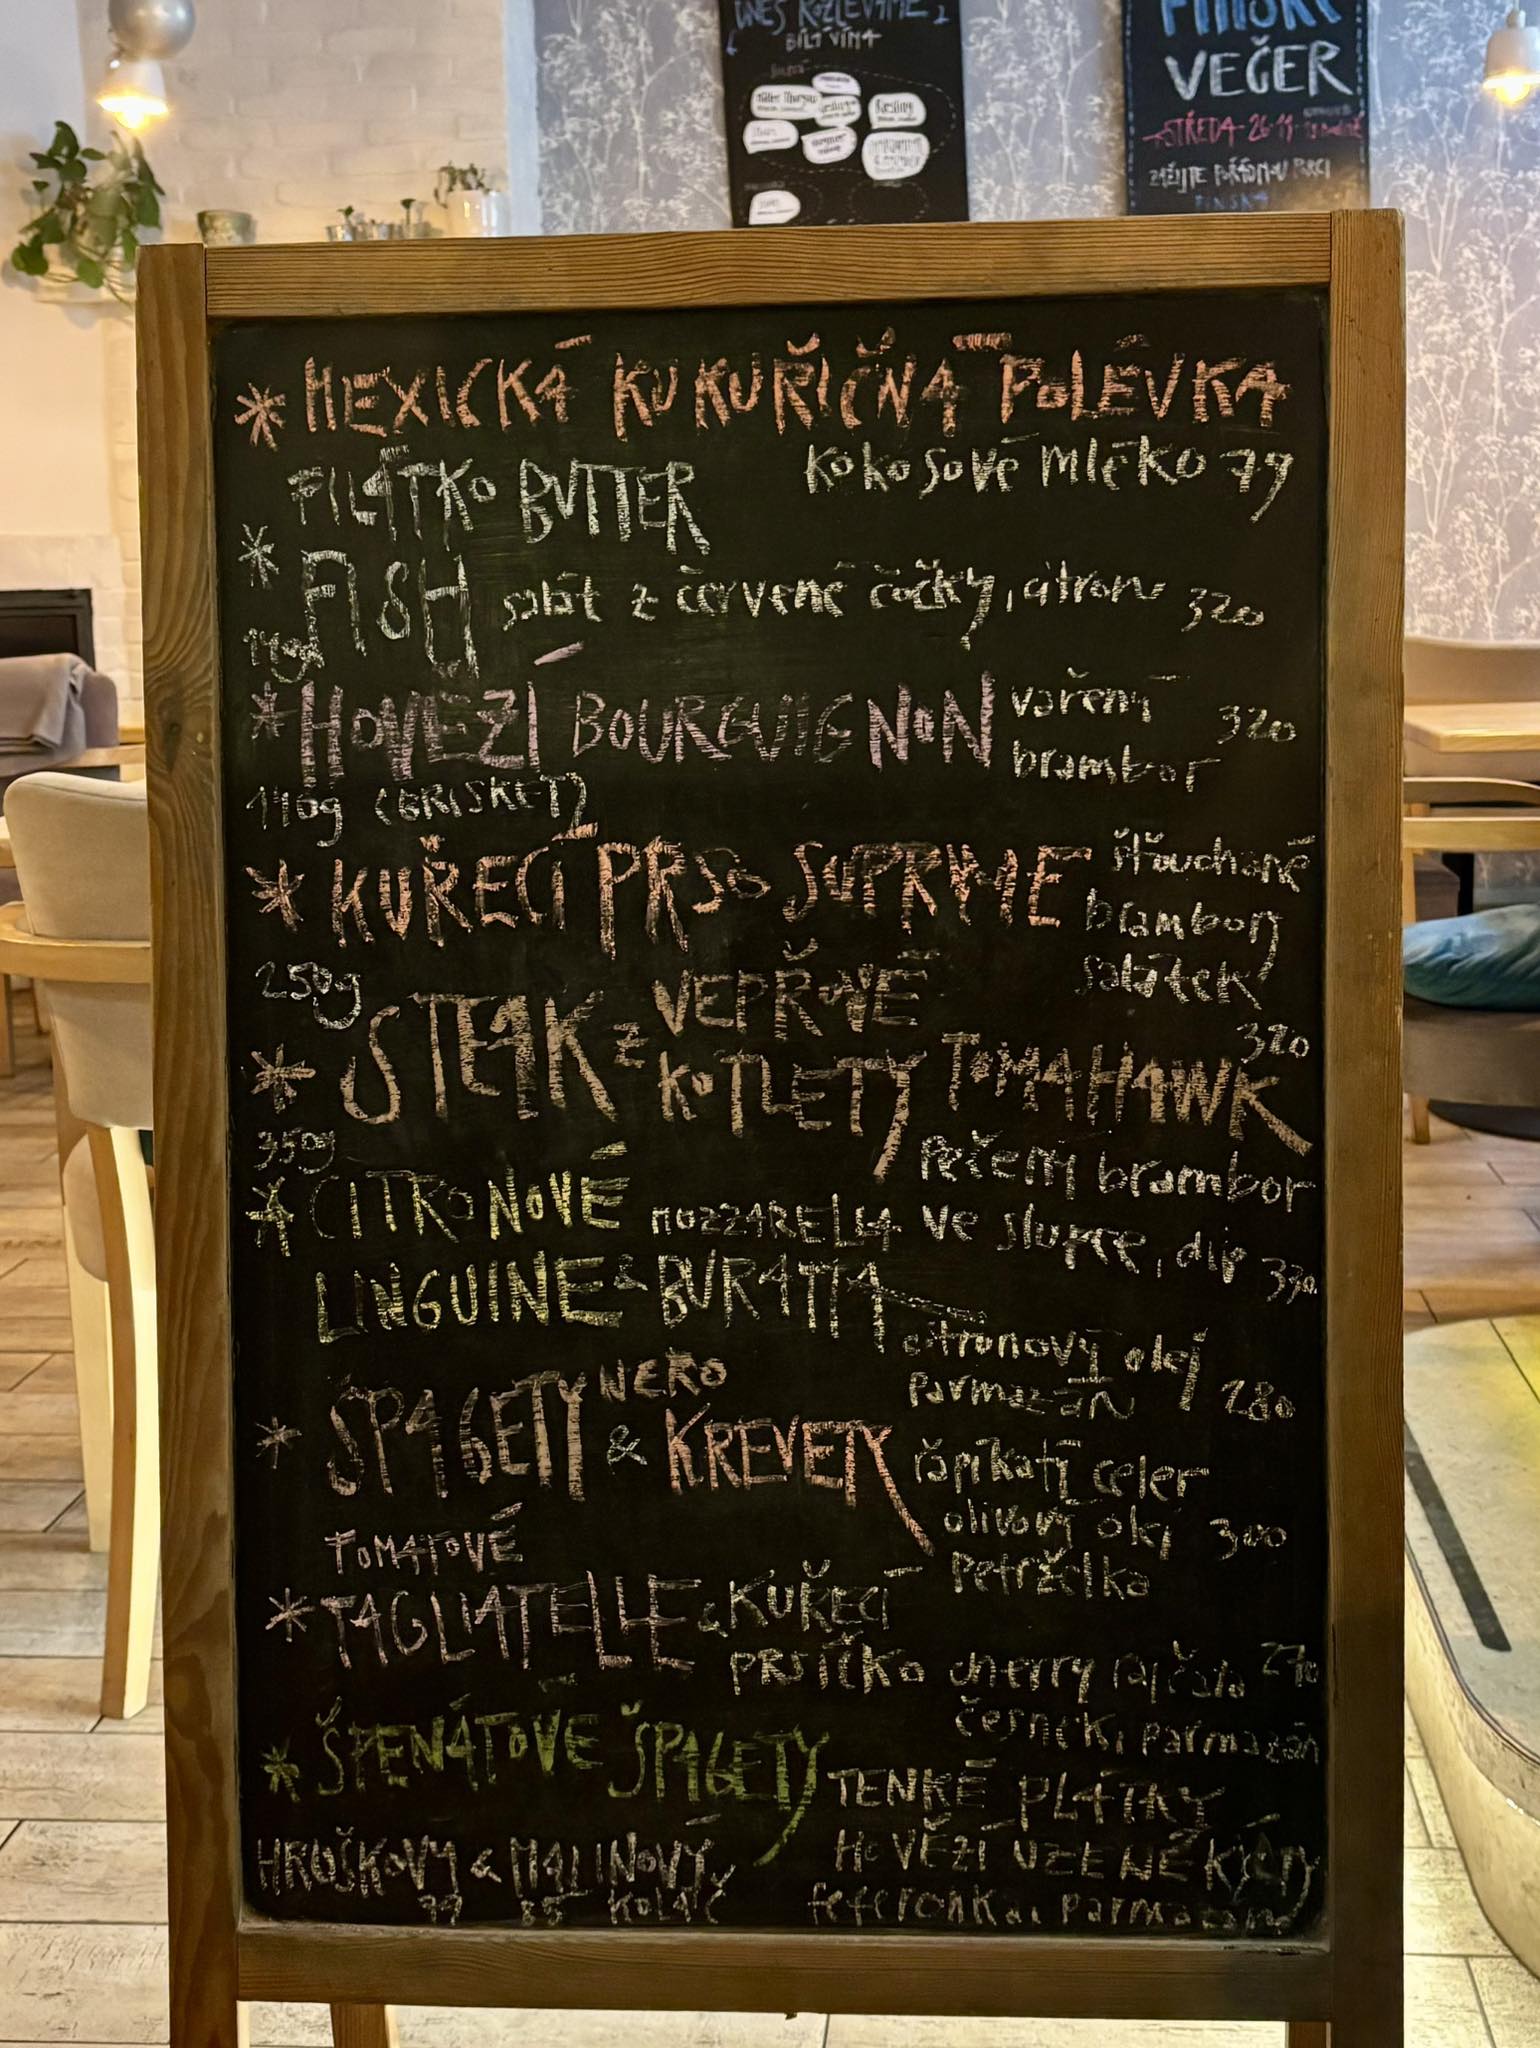 DNES ROZLÉVÁME
BÍLÁ VÍNA
Riesling
FINSKÝ
VEČER
STŘEDA 26.11.
ZAŽIJTE POŘÁDNOU PORCI
FINSKA
* MEXICKÁ KUKUŘIČNÁ POLÉVKA
KOKOSOVÉ MLÉKO 79
FILÁTKO BUTTER
* FISH salát z červené čočky, citron 320
140g
* HOVĚZÍ BOURGUIGNON vařený brambor 320
140g (BRISKET)
* KUŘECÍ PRSO SUPRYME šťouchané
brambory
salátek
250g
320
* STEAK z VEPŘOVÉ KOTLETY TOMAHAWK
350g
Pečený brambor
ve slupce, dip 330
* CITRONOVÉ MOZZARELLA
LINGUINE & BURATTA
citronový olej
parmazán 280
* ŠPAGETY NERO & KREVETY řapíkatý celer
olivový olej 300
Petrželka
TOMATOVÉ
* TAGLIATELLE & KUŘECÍ
PRSÍČKO cherry rajčata 270
česnek, parmazán
* ŠPENÁTOVÉ ŠPAGETY TENKÉ PLÁTKY
HOVĚZÍ UZENÉ KÝTY
feferonka, parmazán
HRUŠKOVÝ & MALINOVÝ
79 85 KOLÁČ